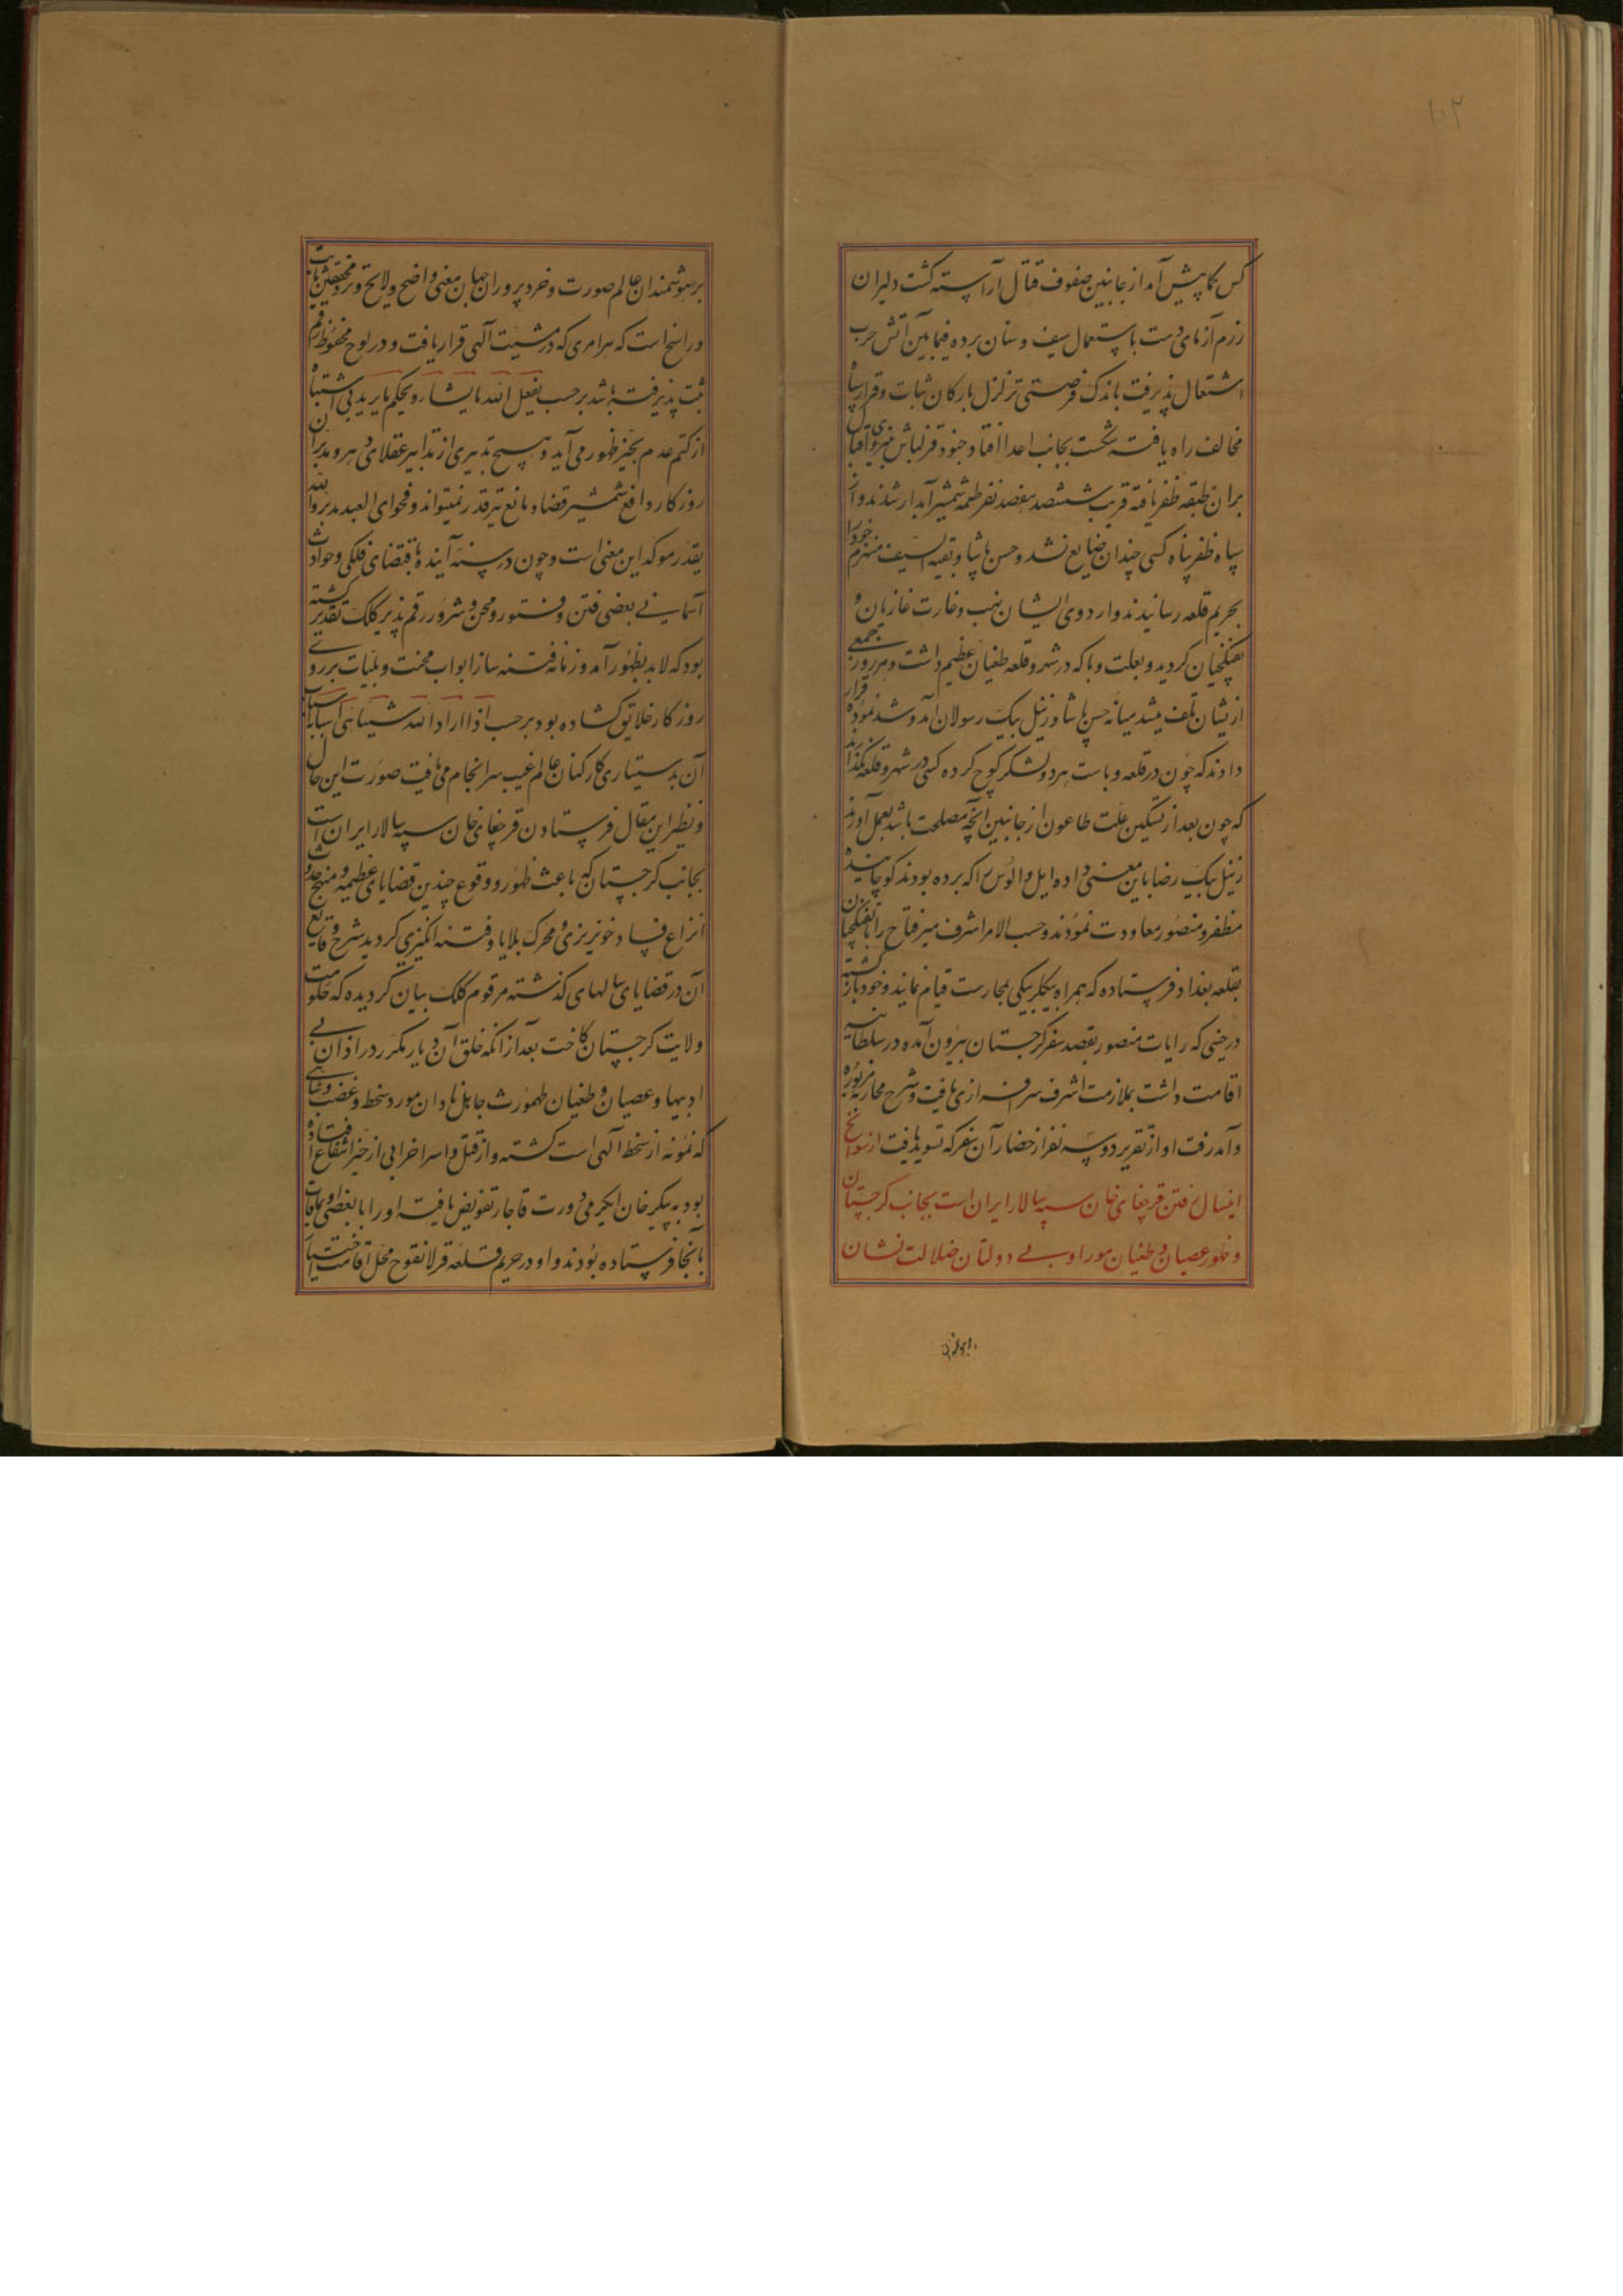 ۱۰۲
کس بکا پیش آمد از جانبین صفوف قتال آراسته گشت دلیران
رزم آزمای دست باستعمال سیف و سنان برده فیمابین آتش حرب
اشتعال پذیرفت باندک فرصتی تزلزل بارکان ثبات و قرار سپاه
مخالف راه یافته شکست بجانب اعدا افتاد و جنود قزلباش نیروی اقبال
بران طبقه ظفر یافته قریب ششصد هفصد نفر طعمه شمشیر آبدار شدند و از
سپاه ظفر پناه کسی چندان ضایع نشد و حسن پاشا و بقیه السیف منهزم خود را
بحریم قلعه رسانیدند و اردوی ایشان نهب و غارت غازیان و
تفنکچیان کردید و بعلت وبا که در شهر و قلعه طغیان عظیم داشت و هر روز جمعی
ازیشان تلف میشد میانه حسن پاشا و زینل بیک رسولان آمد و شد نموده قرار
دادند که چون در قلعه وباست هر دو لشکر کوچ کرده کسی در شهر و قلعه نگذارند
که چون بعد از تسکین علت طاعون از جانبین آنچه مصلحت باشد بعمل آورند
زینل بیک رضا باین معنی داده ایل و الوس را که برده بودند کوچانیده
مظفر و منصور معاودت نمودند و حسب الامر اشرف میر فتاح را با تفنکچیان
بقلعه بغداد فرستاده که همراه بیکلربیکی بمحارست قیام نمایند و خود بازگشته
در حینی که رایات منصور بقصد سفر گرجستان بیرون آمده در سلطانیه
اقامت داشت بملازمت اشرف سرافرازی یافت و شرح محاربه مزبوره
و آمد رفت او از تقریر دو سه نفر از حضار آن سفر که تسوید یافت از سوانح
اینسال رفتن قرچغای خان سپه سالار ایران است بجانب گرجستان
و ظهور عصیان و طغیان موراو بی دولتان ضلالت نشان
بر هوشمندان
بر هوشمندان عالم صورت و خرد پروران جهان معنی واضح و لایح و نزد محققین ثابت
و راسخ است که هر امری که در مشیت آلهی قرار یافت و در لوح محفوظ رقم
ثبت پذیرفته باشد بر حسب یفعل الله ما یشاء و یحکم ما یرید بی اشتباه
از کتم عدم بحیز ظهور می آید و هیچ تدبیری از تدابیر عقلای دهر و مدبران
روزکار دافع شمشیر قضا و مانع تیر قدر نمیتواند و فحوای العبد یدبر و الله
یقدر موکد این معنی است و چون در سنه آینده باقتضای فلکی و حوادث
آسمانی بعضی فتن و فتور و محن و شرور رقم پذیر کلک تقدیر گشته
بود که لابد بظهور آمد و زمانه فتنه ساز ابواب محنت و بلیات بر روی
روزکار خلایق کشاده بود بر حسب اذا اراد الله شیئا هیئ اسبابه اسباب
آن بدستیاری کارکنان عالم غیب سرانجام می یافت صورت این حال
و نظیر این مقال فرستادن قرچغای خان سپه سالار ایران است
بجانب گرجستان که باعث ظهور و وقوع چندین قضایای عظیمه و منتج حدوث
انواع فساد و خونریزی و محرک بلایا و فتنه انگیزی کردید شرح وقایع
آن در قضایای سالهای گذشته مرقوم کلک بیان گردیده که حکومت
ولایت گرجستان کاخت بعد از آنکه خلق آن دیار مکرر در ازان بی
ادبیها و عصیان و طغیان طهمورث جاهل نادان مورد سخط و غضب و شاهی
که نمونه از سخط آلهی است گشته و از قتل و اسر و خرابی از حیز انتفاع افتاده
بود به پیکر خان ایکرمی دورت قاجار تفویض یافته او را با بعضی اویماقات
بآنجا فرستاده بودند و او در حریم قلعه قرلانقوح محل اقامت انداخت